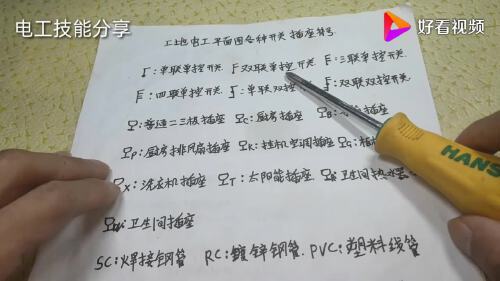 电工技能分享
好看视频
工地电工平面图各种开关插座符号
：单联单控开关 ：双联单控开关 ：三联单控开关
：四联单控开关 ：单联双控 ：双联双控开关
：普通二三极插座 C：厨房插座 B：
P：厨房排风扇插座 K：挂机空调插座 G：
X：洗衣机插座 T：太阳能插座 ：卫生间热水器
W：卫生间插座
SC：焊接钢管 RC：镀锌钢管. PVC：塑料线管
HANS